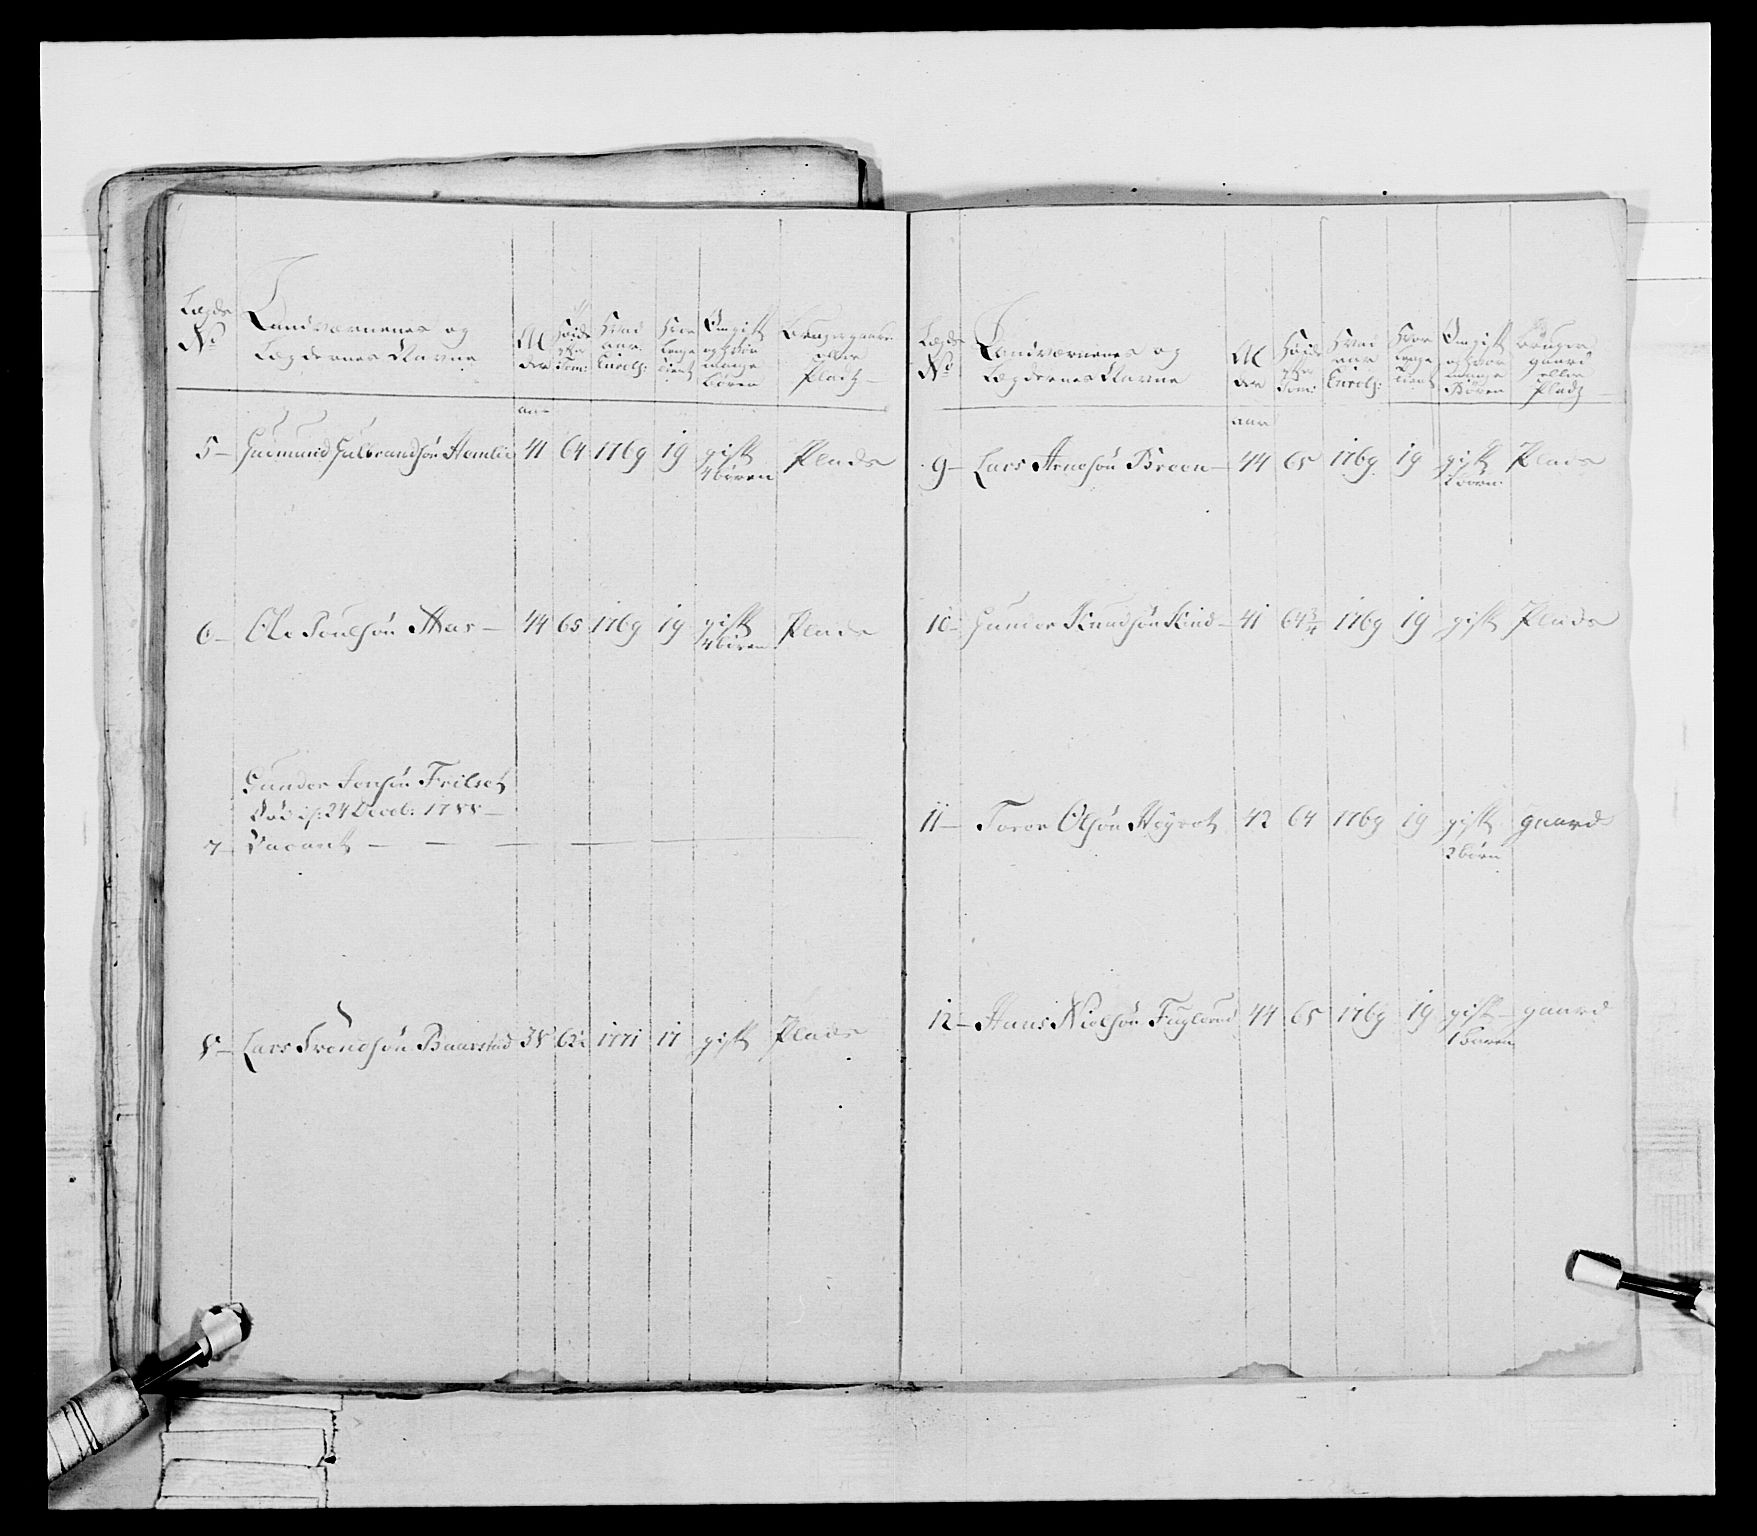 Lægds No Landværnenes og Lægdernes Navne Al der Høide efter Tom: Hvad aar Enroll: Hvor Lenge tient Om gift og hvor mange Børen Bruger gaard eller Pladz
aar
5 — Gudmund Gulbrandsøn Hemlie 41 64 1769 19 gift 4 børen Plads
6 — Ole Poulsøn Aas — 44 65 1769 19 gift 4 børen Plads
Gunder Jensøn Frilset
Død if: 24 Deceb: 1788 —
7 Vacant — — — —
8 — Lars Trondsøn Baarstad 38 62½ 1771 17 gift Plads
Lægds No Landværnenes og Lægdernes Navne Al der Høide efter Tom: Hvad aar Enroll: Hvor Lenge tient Om gift og hvor mange Børen Bruger gaard eller Pladz
aar
9 — Lars Arnesøn Breen — 44 65 1769 19 gift 2 børn Plads
10 — Gunder Knudsøn Kind — 41 64¾ 1769 19 gift Plads
11 — Torer Olsøn Høyset 42 64 1769 19 gift 2 børn gaard
12 — Hans Nielsøn Fuglerud 44 65 1769 19 gift — 1 baren gaard